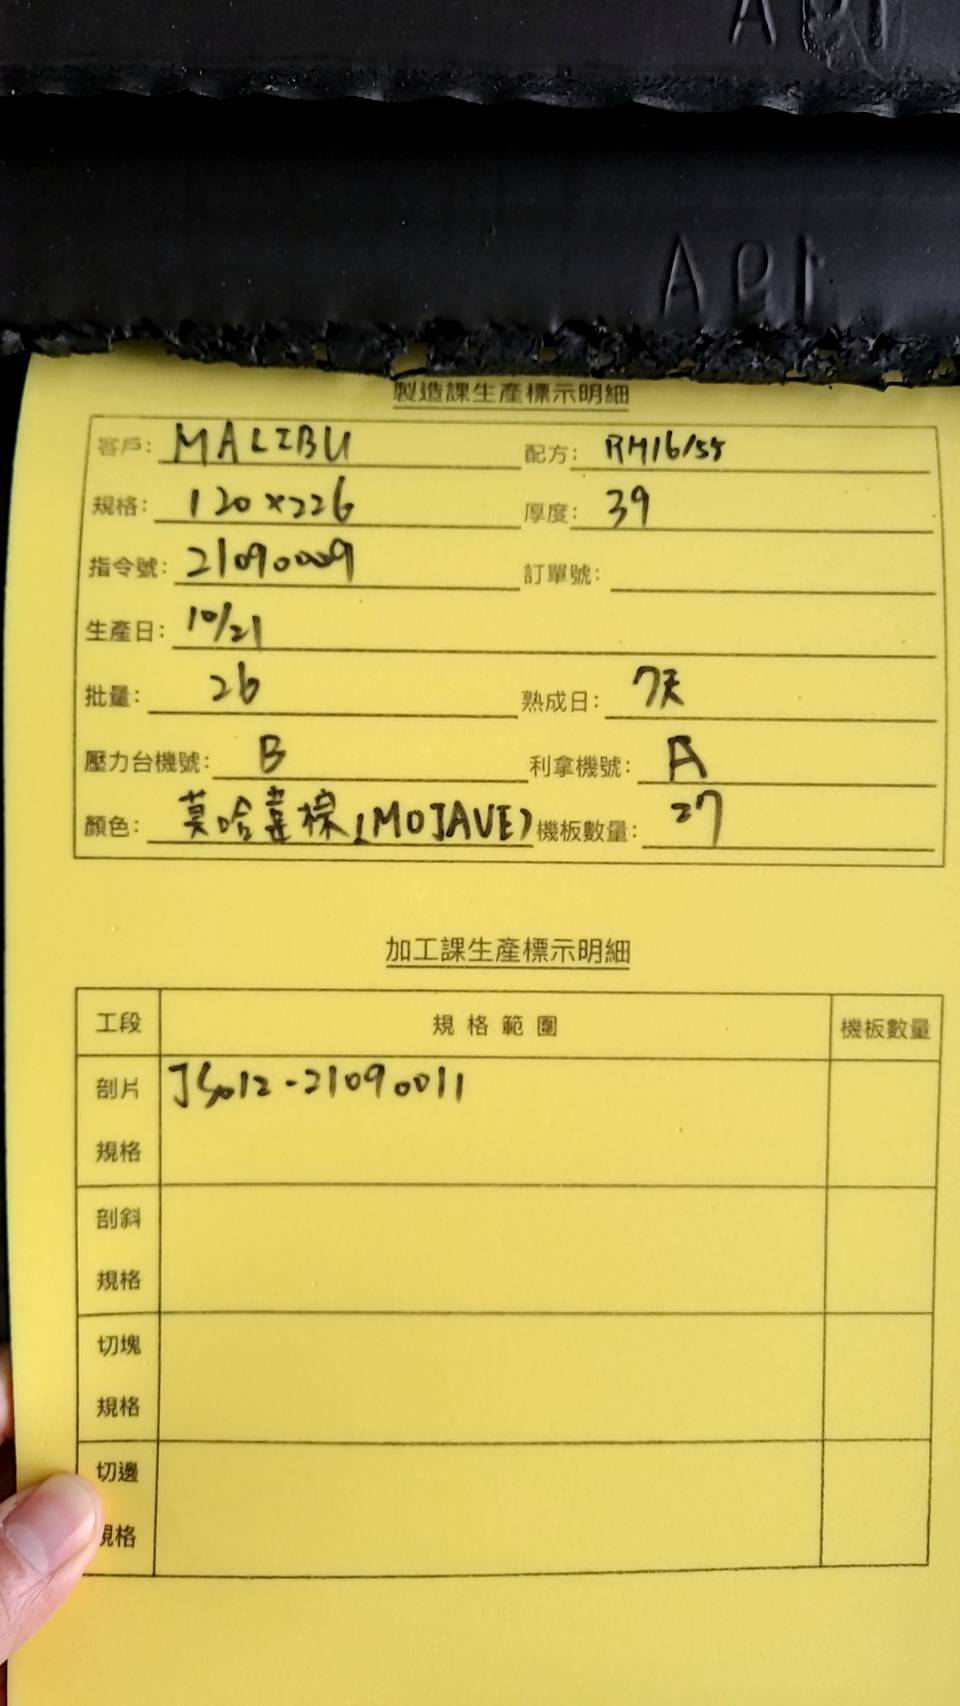 A91
A91
製造課生產標示明細
客戶: MALIBU 配方: RM16/55
規格: 120×226 厚度: 39
指令號: 21090009 訂單號:
生產日: 10/21
批量: 26 熟成日: 7天
壓力台機號: B 利拿機號: A
顏色: 莫哈韋棕(MOJAVE) 機板數量: 27
加工課生產標示明細
工段 規格範圍 機板數量
剖片 JS012-21090011
規格
剖斜
規格
切塊
規格
切邊
規格